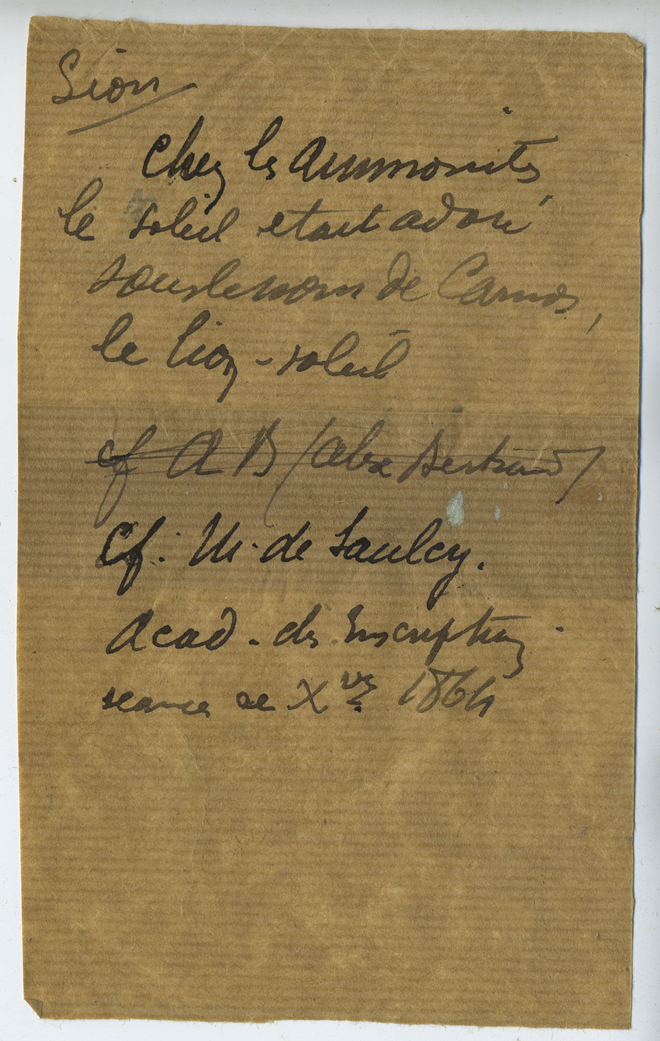 Lion
Chez les ammonites
le soleil etait adoré
sous le nom de Camos,
le lion-soleil
cf A B (Alex Bertrand)
Cf. M. de Saulcy.
Acad. des Inscriptions.
séances de Xbre 1864